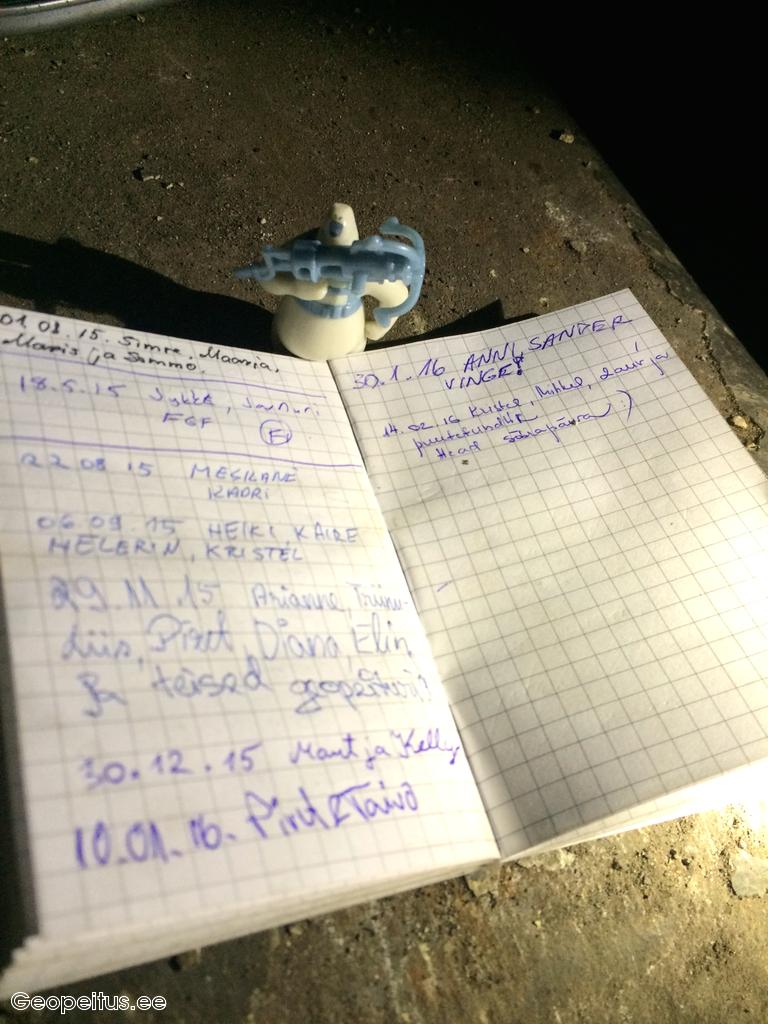 01.08.15. Simre, Maarja,
Maris ja Simmo.
18.5.15
FGF E
22 08 15 MESKANE
KADRI
06 09. 15, HEIKI, KAIRE
MELERIN, KRISTEL
29.11.15 Arianne, Triinu-
Liis, Piret, Diana, Elin
ja teised geopeiturid
30.12.15 Mart ja Kelly
10.01.16. Piret & Taivo
30.1.16 ANNI, SANDER
VINGE!
14.02.16 Kristel, Mihkel, Lauri ja
Head sõbrapäeva :)
Geopeitus.ee